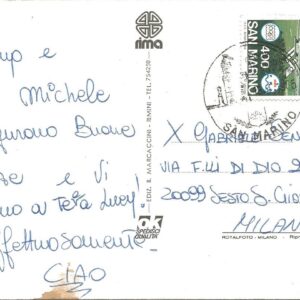 up e
Michele
gurano Buone
e vi
no a
ffettuosamente
CIAO
rima
EDIZ. B. MARCACCINI - RIMINI - TEL. 754230
SAN MARINO
400
SAN MARINO
X Gabriele
VIA F.LLI DI DIO
20099 SESTO S. GIO
MILAN
ROTALFOTO - MILANO - Rip